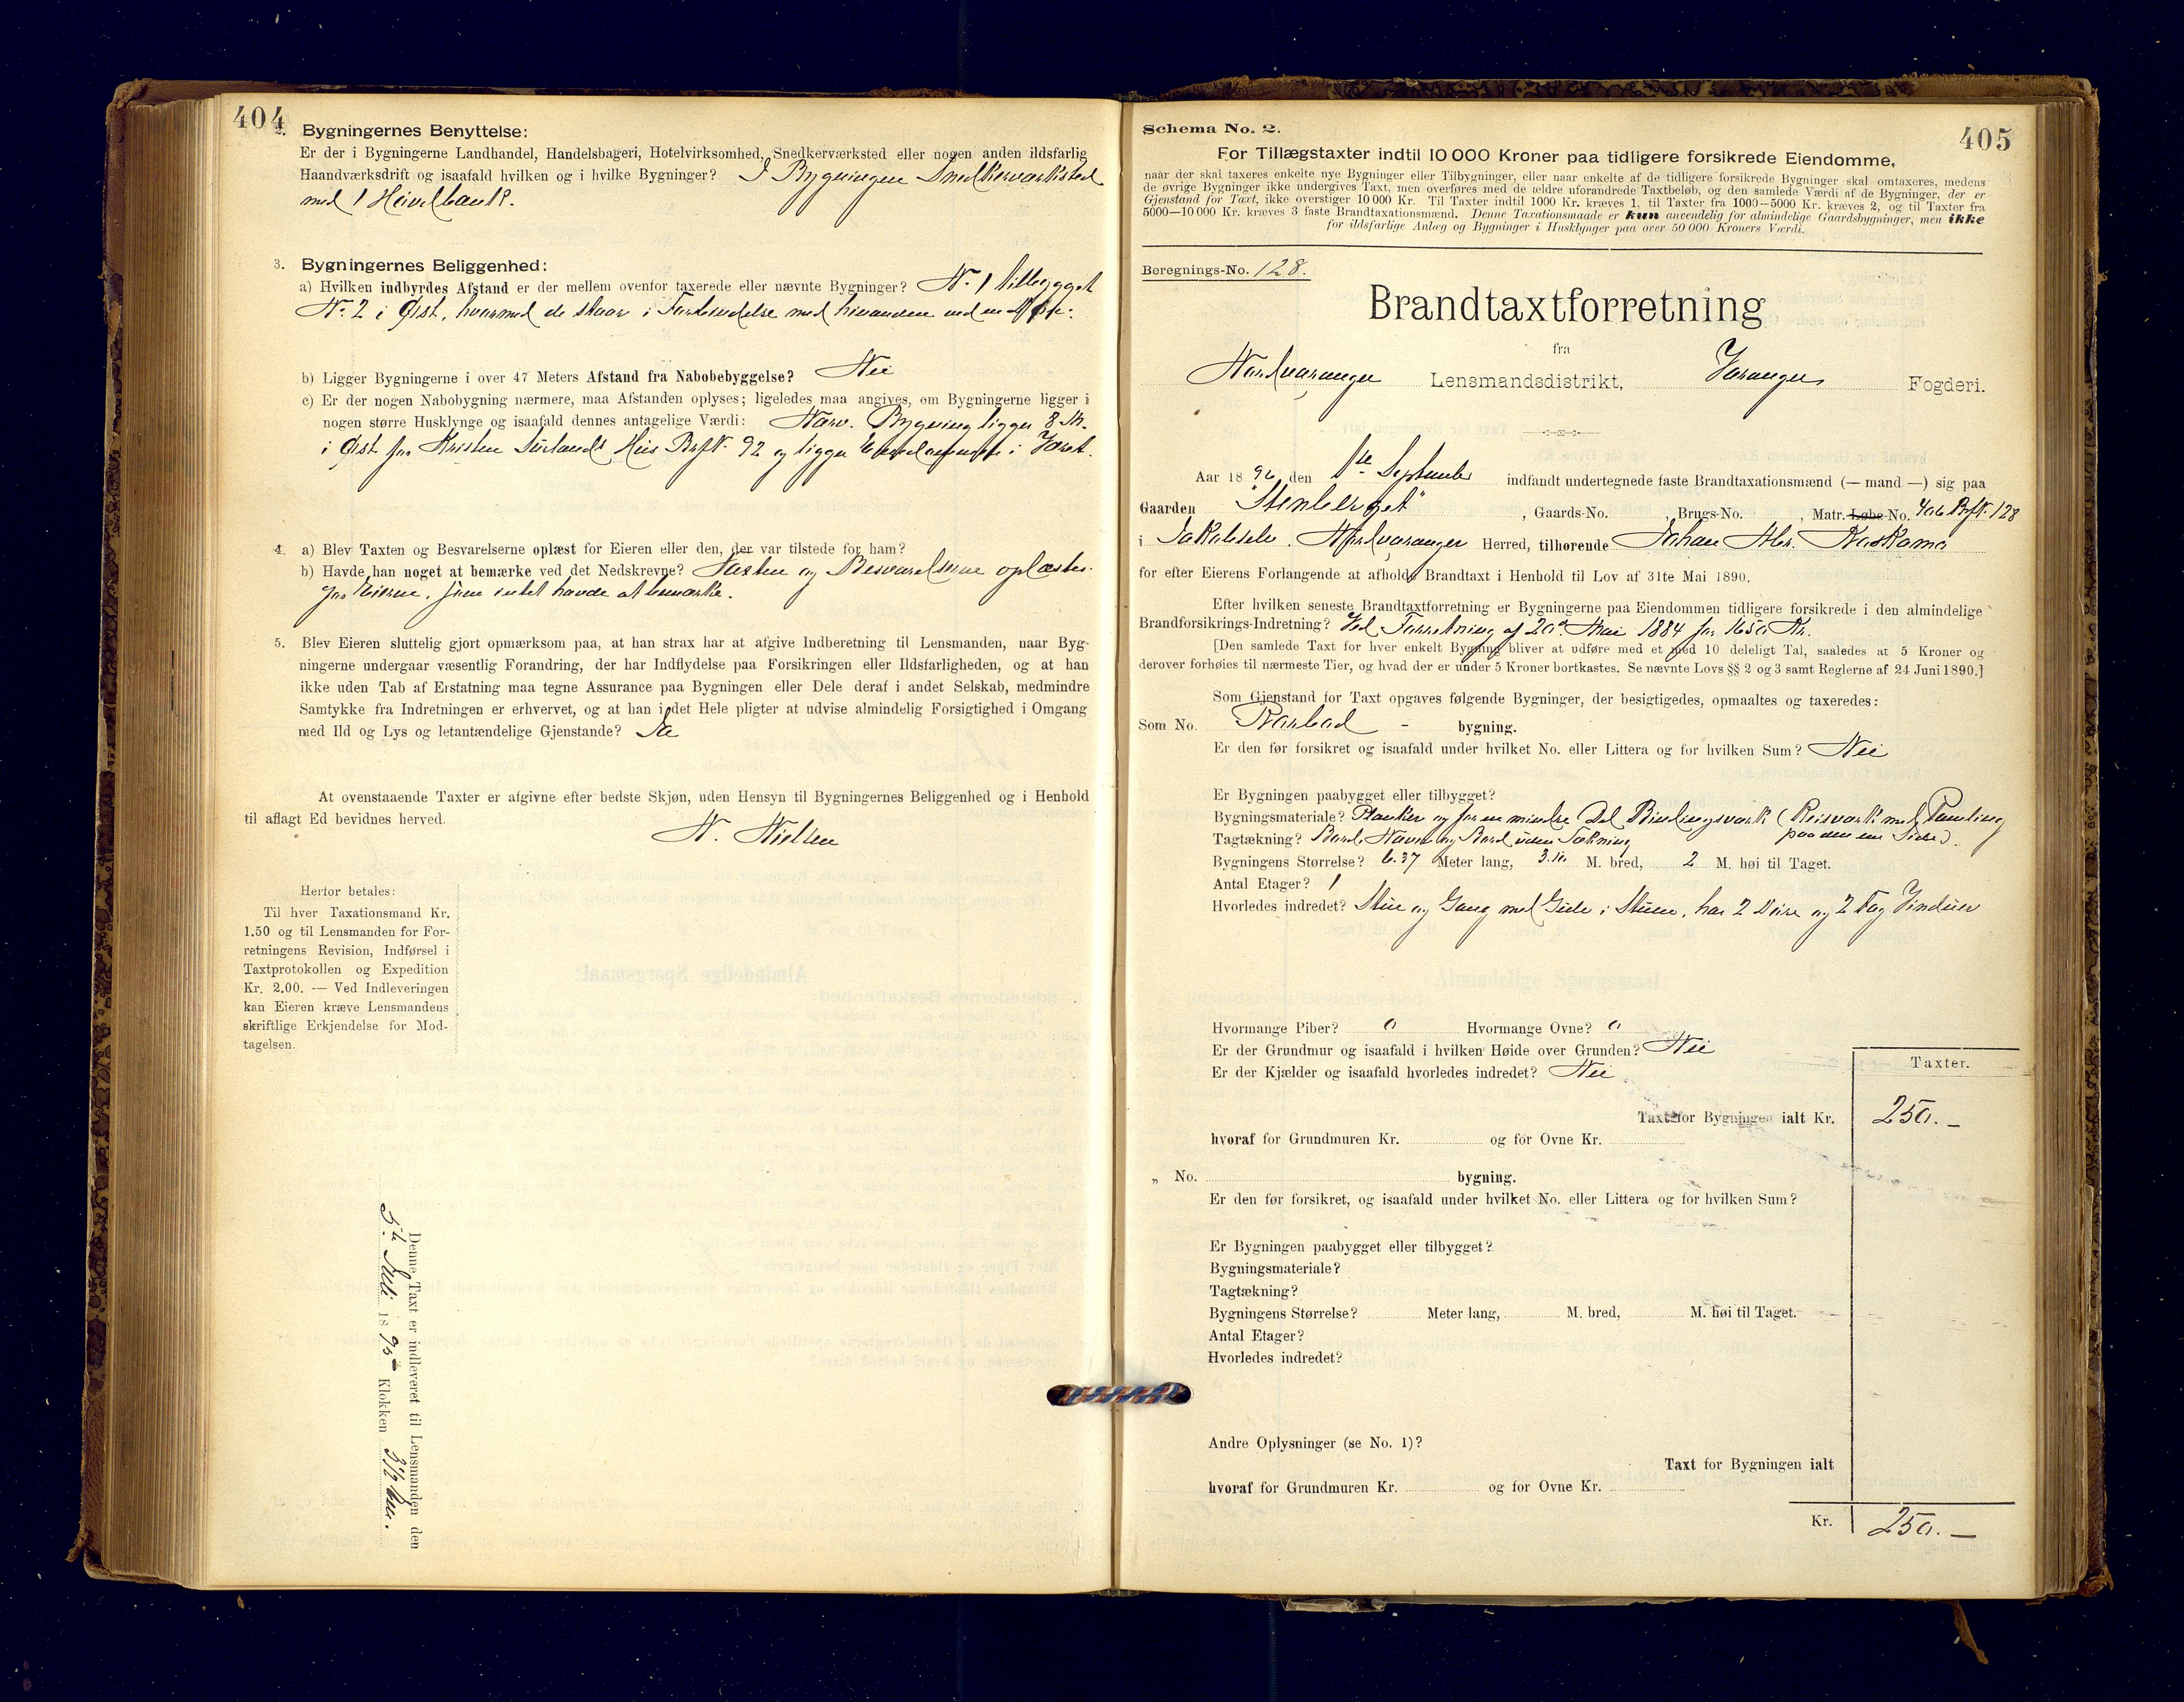 404
2. Bygningernes Benyttelse:
Er der i Bygningerne Landhandel, Handelsbageri, Hotelvirksomhed, Snedkerværksted eller nogen anden ildsfarlig
Haandværksdrift og isaafald hvilken og i hvilke Bygninger? I Bygningen Snedkerværksted
med 1 Høvelbænk.
3. Bygningernes Beliggenhed:
a) Hvilken indbyrdes Afstand er der mellem ovenfor taxerede eller nævnte Bygninger? No. 1 tilbygget
No. 2 i Øst, hvormed de staar i Forbindelse med hinanden ved en
b) Ligger Bygningerne i over 47 Meters Afstand fra Nabobebyggelse? Nei
c) Er der nogen Nabobygning nærmere, maa Afstanden oplyses; ligeledes maa angives, om Bygningerne ligger i
nogen større Husklynge og isaafald dennes antagelige Værdi: Nærv. Bygning ligger 8 M.
i Øst for Kristen Hus Brfk. 92 og ligger Eiendommene i Været.
4. a) Blev Taxten og Besvarelserne oplæst for Eieren eller den, der var tilstede for ham?
b) Havde han noget at bemærke ved det Nedskrevne? Taxten og Besvarelserne oplæstes
for Eieren, som intet havde at bemærke.
5. Blev Eieren sluttelig gjort opmærksom paa, at han strax har at afgive Indberetning til Lensmanden, naar Byg-
ningerne undergaar væsentlig Forandring, der har Indflydelse paa Forsikringen eller Ildsfarligheden, og at han
ikke uden Tab af Erstatning maa tegne Assurance paa Bygningen eller Dele deraf i andet Selskab, medmindre
Samtykke fra Indretningen er erhvervet, og at han i det Hele pligter at udvise almindelig Forsigtighed i Omgang
med Ild og Lys og letantændelige Gjenstande? Ja
At ovenstaaende Taxter er afgivne efter bedste Skjøn, uden Hensyn til Bygningernes Beliggenhed og i Henhold
til aflagt Ed bevidnes herved.
N. Nielsen
Herfor betales:
Til hver Taxationsmand Kr.
1.50 og til Lensmanden for For-
retningens Revision, Indførsel i
Taxtprotokollen og Expedition
Kr. 2.00. — Ved Indleveringen
kan Eieren kræve Lensmandens
skriftlige Erkjendelse for Mod-
tagelsen.
Denne Taxt er indleveret til Lensmanden den
5te Juli 1895 Klokken 3 1/2
405
Schema No. 2.
For Tillægstaxter indtil 10 000 Kroner paa tidligere forsikrede Eiendomme,
naar der skal taxeres enkelte nye Bygninger eller Tilbygninger, eller naar enkelte af de tidligere forsikrede Bygninger skal omtaxeres, medens
de øvrige Bygninger ikke undergives Taxt, men overføres med de ældre uforandrede Taxtbeløb, og den samlede Værdi af de Bygninger, der er
Gjenstand for Taxt, ikke overstiger 10 000 Kr. Til Taxter indtil 1000 Kr. kræves 1, til Taxter fra 1000—5000 Kr. kræves 2, og til Taxter fra
5000—10 000 Kr. kræves 3 faste Brandtaxationsmænd. Denne Taxationsmaade er kun anvendelig for almindelige Gaardsbygninger, men ikke
for ildsfarlige Anlæg og Bygninger i Husklynger paa over 50 000 Kroners Værdi.
Beregnings-No. 128.
Brandtaxtforretning
fra
Nordvaranger Lensmandsdistrikt, Varanger Fogderi.
Aar 1896 den 1ste September indfandt undertegnede faste Brandtaxationsmænd (— mand —) sig paa
Gaarden "Stenberget", Gaards-No. , Brugs-No. , Matr.-Løbe-No. 406 Brfk. 128
i Jakobselv, Nordvaranger Herred, tilhørende Johan Abr. Kaskama
for efter Eierens Forlangende at afholde Brandtaxt i Henhold til Lov af 31te Mai 1890.
Efter hvilken seneste Brandtaxtforretning er Bygningerne paa Eiendommen tidligere forsikrede i den almindelige
Brandforsikrings-Indretning? Ved Forretning af 20de Mai 1884 for 1650 Kr.
[Den samlede Taxt for hver enkelt Bygning bliver at udføre med et med 10 deleligt Tal, saaledes at 5 Kroner og
derover forhøies til nærmeste Tier, og hvad der er under 5 Kroner bortkastes. Se nævnte Lovs §§ 2 og 3 samt Reglerne af 24 Juni 1890.]
Som Gjenstand for Taxt opgaves følgende Bygninger, der besigtigedes, opmaaltes og taxeredes:
Som No. - bygning.
Er den før forsikret og isaafald under hvilket No. eller Littera og for hvilken Sum? Nei
Er Bygningen paabygget eller tilbygget?
Bygningsmateriale? Planker og for en mindre Del Bindingsværk (Reisværk med Paneling
paa den ene Side).
Tagtækning? Bord, Næver og Bord uden Tækning
Bygningens Størrelse? 6.37 Meter lang, 3.10 M. bred, 2 M. høi til Taget.
Antal Etager? 1
Hvorledes indredet? Stue og Gang med Gulv i Stuen, har 2 Døre og 2 Fag Vinduer
Hvormange Piber? 0 Hvormange Ovne? 0
Er der Grundmur og isaafald i hvilken Høide over Grunden? Nei
Er der Kjælder og isaafald hvorledes indredet? Nei
Taxter.
Taxt for Bygningen ialt Kr. 250.—
hvoraf for Grundmuren Kr. og for Ovne Kr.
„ No. bygning.
Er den før forsikret, og isaafald under hvilket No. eller Littera og for hvilken Sum?
Er Bygningen paabygget eller tilbygget?
Bygningsmateriale?
Tagtækning?
Bygningens Størrelse? Meter lang, M. bred, M. høi til Taget.
Antal Etager?
Hvorledes indredet?
Andre Oplysninger (se No. 1)?
Taxt for Bygningen ialt
hvoraf for Grundmuren Kr. og for Ovne Kr.
Kr. 250.—